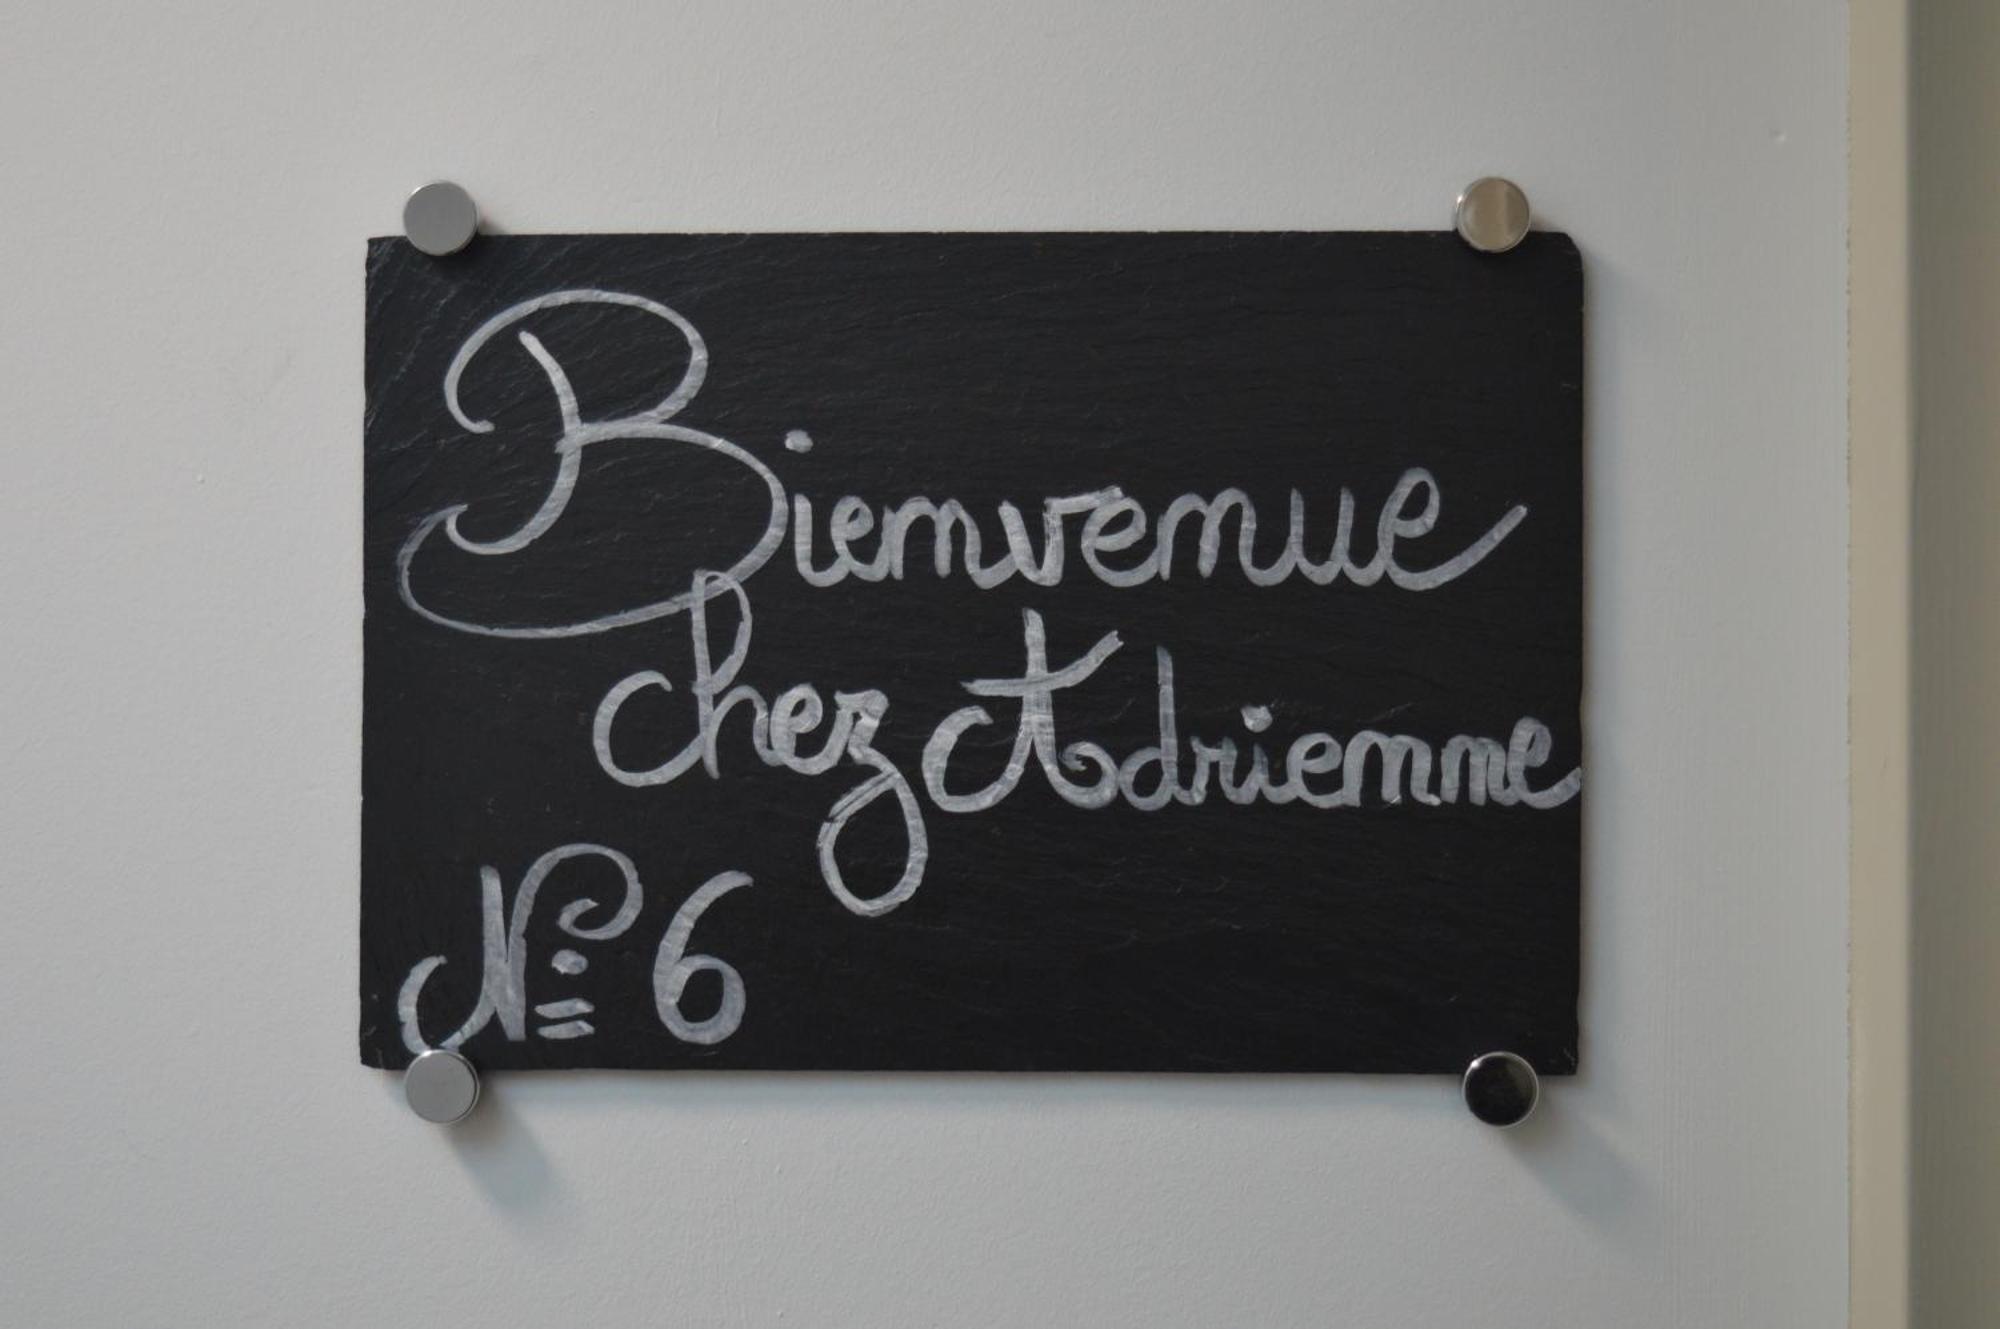 Bienvenue
chez Adrienne
N° 6